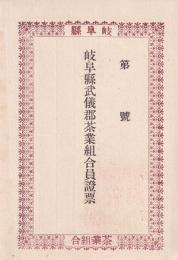 岐阜縣
第　號
岐阜縣武儀郡茶業組合員證票
茶業組合